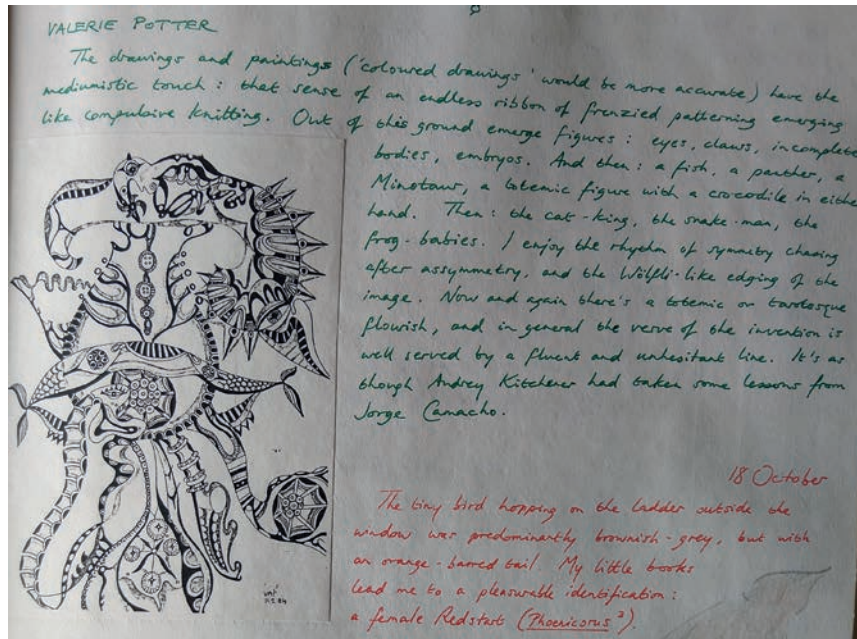 VALERIE POTTER
The drawings and paintings ('coloured drawings' would be more accurate) have the
mediumistic touch : that sense of an endless ribbon of frenzied patterning emerging
like compulsive knitting. Out of this ground emerge figures : eyes, claws, incomplete
bodies, embryos. And then : a fish, a panther, a
Minotaur, a totemic figure with a crocodile in either
hand. Then : the cat-king, the snake-man, the
frog-babies. I enjoy the rhythm of symmetry chasing
after assymmetry, and the Wölfli-like edging of the
image. Now and again there's a totemic or tarotesque
flourish, and in general the verve of the invention is
well served by a fluent and unhesitant line. It's as
though Audrey Kitchener had taken some lessons from
Jorge Camacho.
18 October
The tiny bird hopping on the ladder outside the
window was predominantly brownish-grey, but with
an orange-barred tail. My little books
lead me to a pleasurable identification :
a female Redstart (Phoenicorus ?).